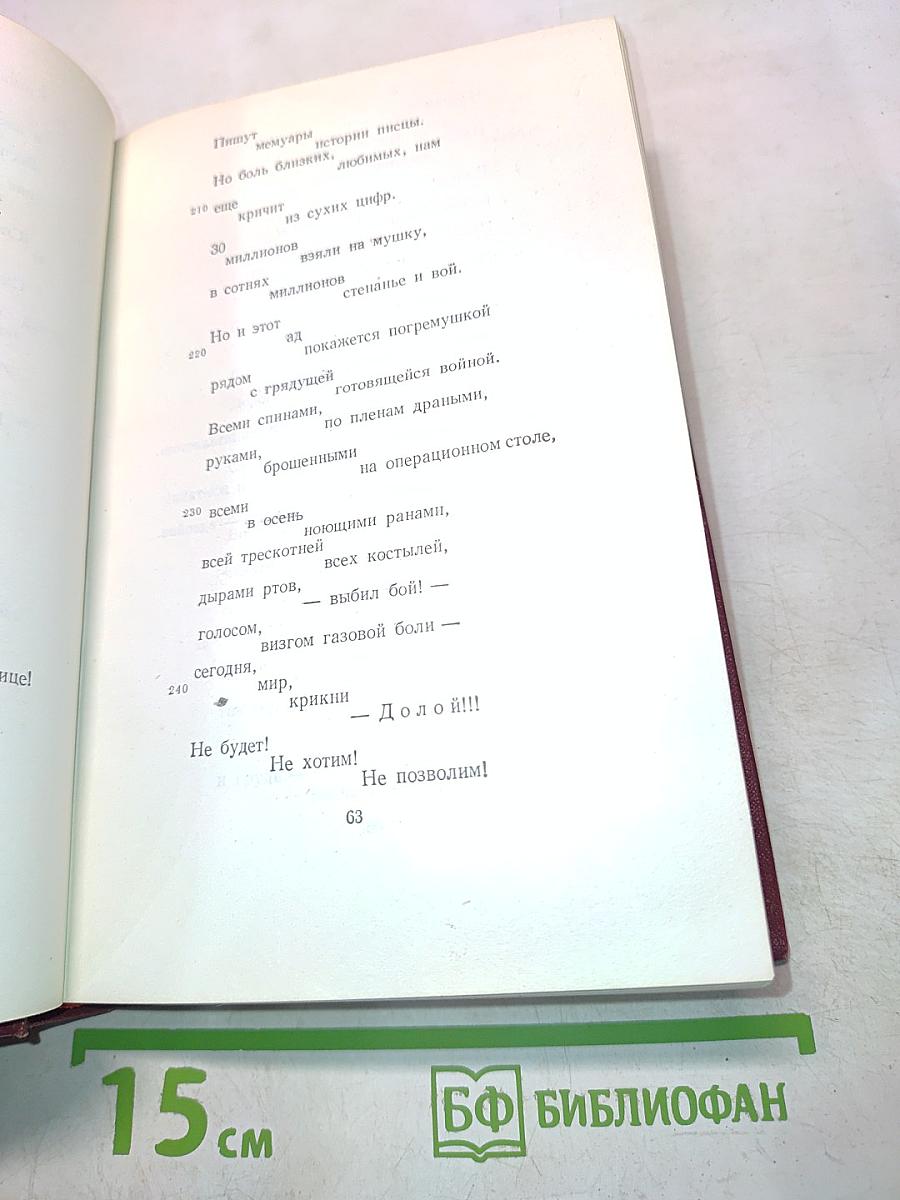 Пишут
мемуары
истории писцы.
Но боль близких,
любимых, нам
210 еще
кричит
из сухих цифр.
30
миллионов
взяли на мушку,
в сотнях
миллионов
стенанье и вой.
Но и этот
ад
220 покажется погремушкой
рядом
с грядущей
готовящейся войной.
Всеми спинами,
по пленам драными,
руками,
брошенными
на операционном столе,
230 всеми
в осень
ноющими ранами,
всей трескотней
всех костылей,
дырами ртов,
— выбил бой! —
голосом,
визгом газовой боли —
сегодня,
240 мир,
крикни
— Долой!!!
Не будет!
Не хотим!
Не позволим!
63
ице!
15 см
БФ БИБЛИОФАН